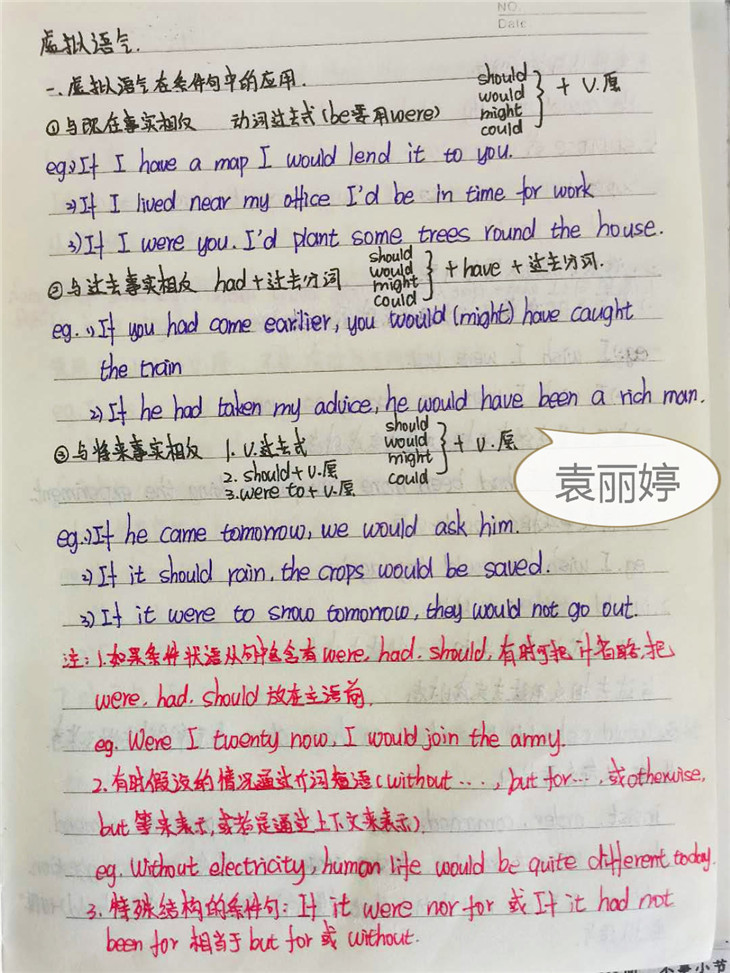 NO.
Date
虚拟语气.
一.虚拟语气在条件句中的应用.
①与现在事实相反 动词过去式(be要用were) should would might could } + V.原
eg.1)If I have a map I would lend it to you.
2)If I lived near my office I'd be in time for work
3)If I were you. I'd plant some trees round the house.
②与过去事实相反 had+过去分词 should would might could } + have + 过去分词.
eg. 1)If you had come earilier, you would (might) have caught
the train
2)If he had taken my advice, he would have been a rich man.
③与将来事实相反 1. V.过去式 should would might could } + V.原
2. should+V.原
3. were to+V.原
袁丽婷
eg.1)If he came tomorrow, we would ask him.
2)If it should rain, the crops would be saved.
3)If it were to snow tomorrow, they would not go out.
注:1.如果条件状语从句中包含有were, had, should, 有时可把 if省略,把
were, had, should 放在主语前.
eg. Were I twenty now, I would join the army.
2.有时假设的情况通过介词短语(without ..., but for..., 或otherwise,
but 等来表示,或者是通过上下文来表示).
eg. Without electricity, human life would be quite different today.
3. 特殊结构的条件句: If it were nor for 或 If it had not
been for 相当于 but for 或 without.